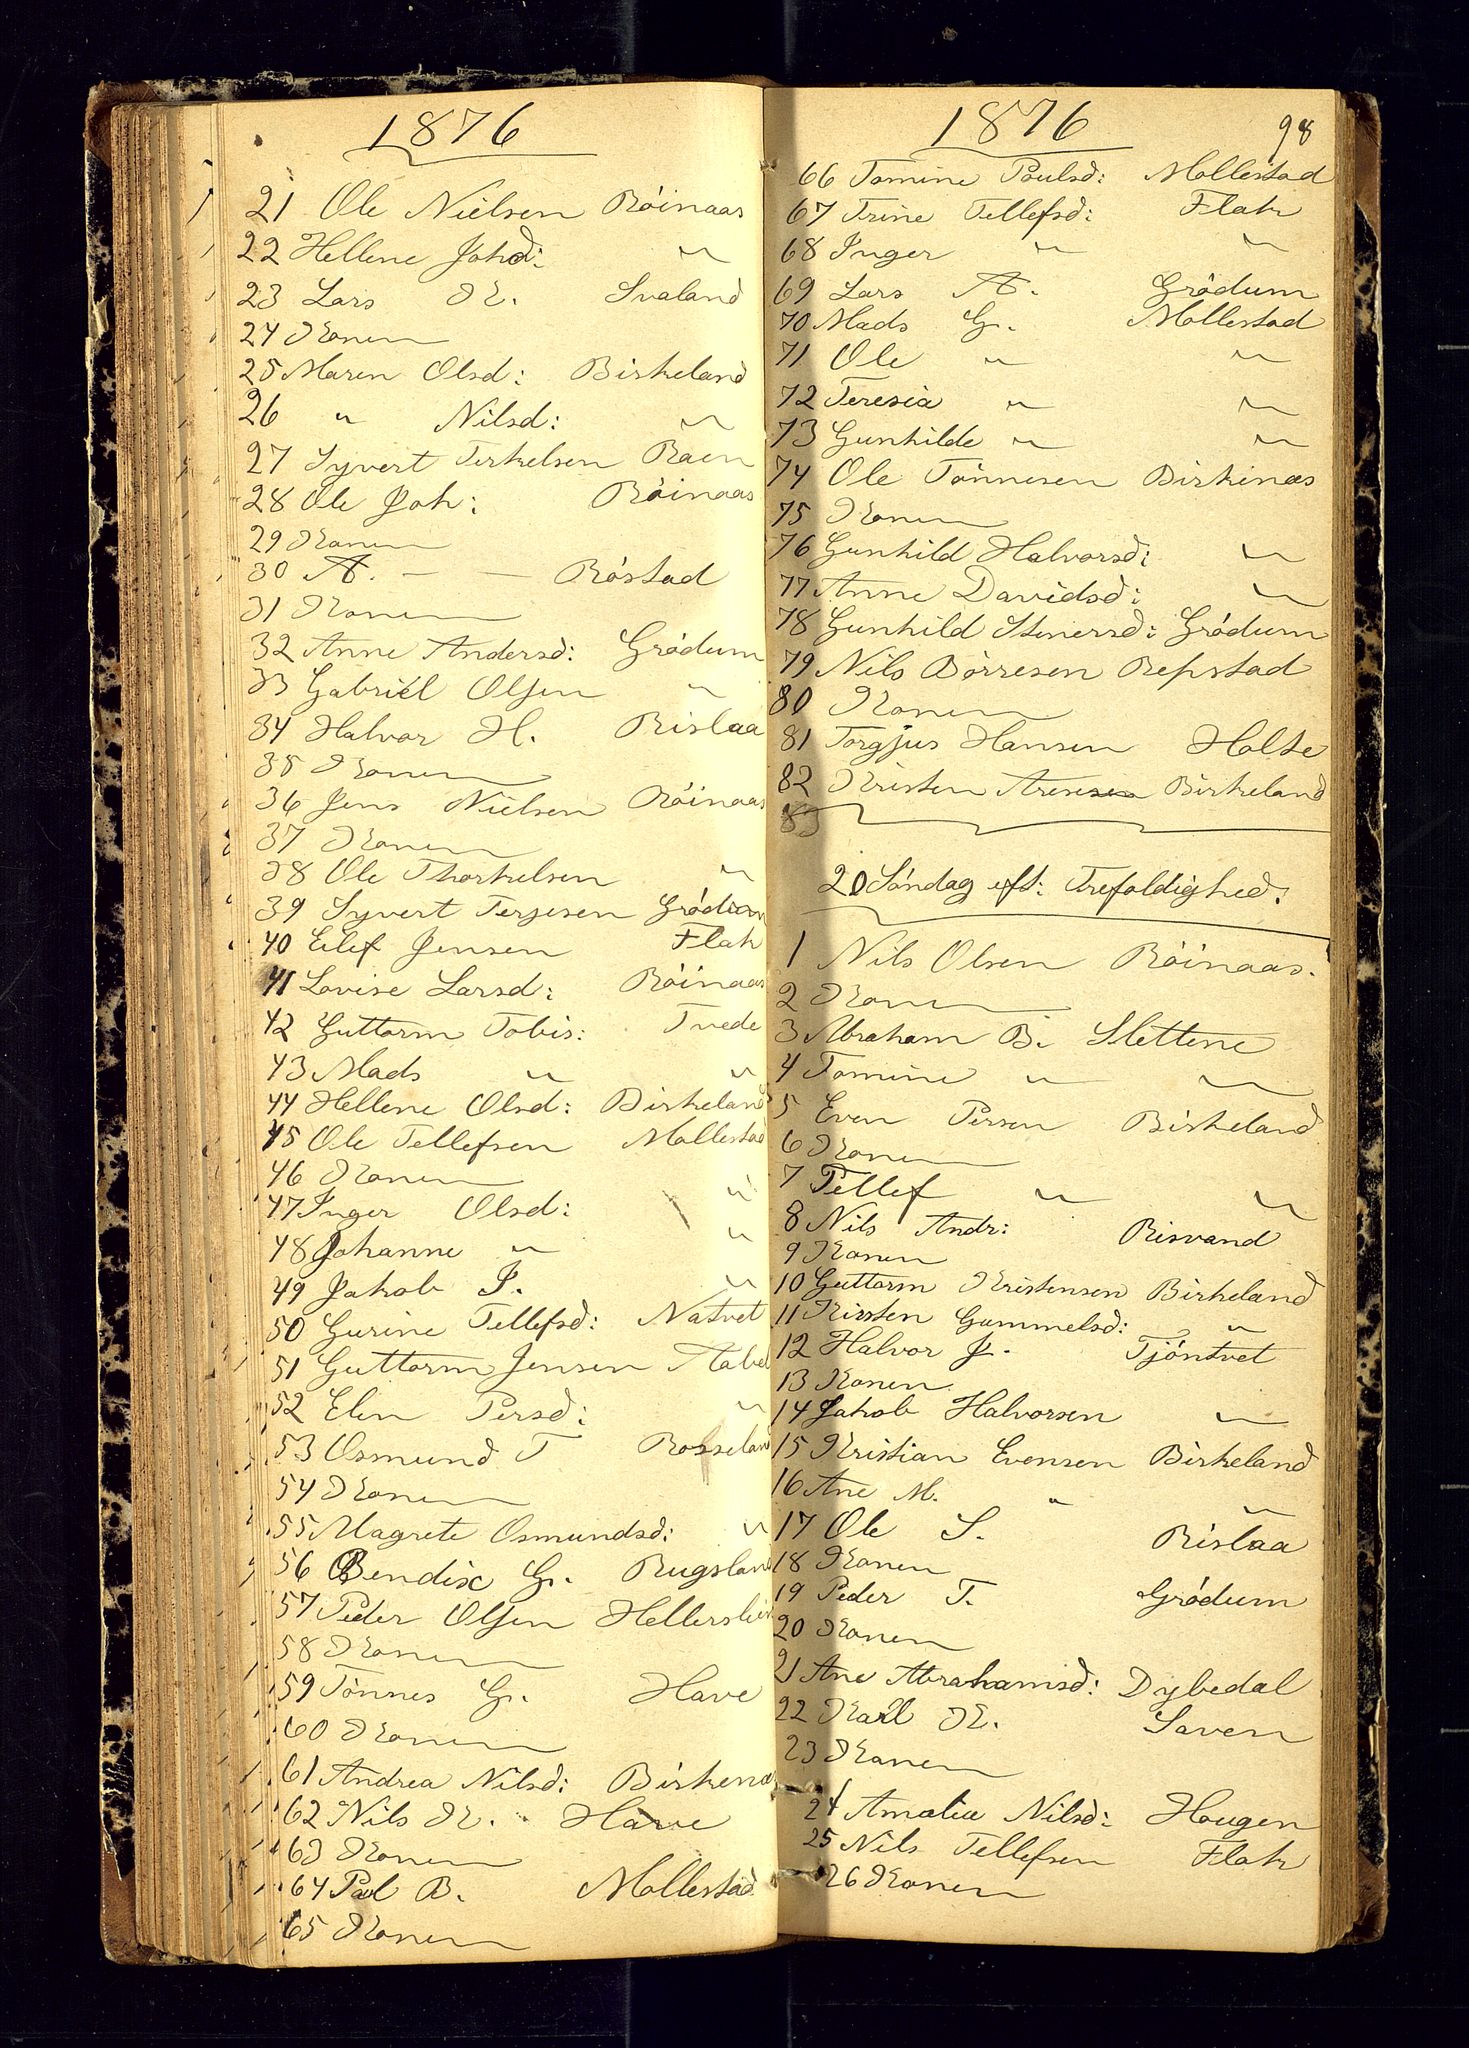 1876
21 Ole Nielsen Röinaas
22 Hellene Johsd: "
23 Lars K. Svaland
24 Konen
25 Maren Olsd: Birkeland
26 " Nilsd: "
27 Syvert Terkelsen Raen
28 Ole Joh: Röinaas
29 Konen
30 A. — — Röstad
31 Konen
32 Anne Andersd: Grödum
33 Gabriel Olsen "
34 Halvor H. Rislaa
35 Konen
36 Jens Nielsen Röinaas
37 Konen
38 Ole Thorkelsen "
39 Syvert Terjesen Grödum
40 Eilef Jensen Flak
41 Lovise Larsd: Röinaas
42 Guttorm Tobis: Tvede
43 Mads " "
44 Hellene Olsd: Birkeland
45 Ole Tellefsen Mollestad
46 Konen
47 Inger Olsd: "
48 Johanne " "
49 Jakob J. "
50 Gurine Tellefsd: Natvet
51 Guttorm Jensen Aabel
52 Elen Persd: "
53 Osmund T Rosseland
54 Konen
55 Magrete Osmundsd: "
56 Bendix G. Rugsland
57 Peder Olsen Hellersl
58 Konen
59 Tönnes G. Have
60 Konen
61 Andrea Nilsd: Birkenæs
62 Nils K. Have
63 Konen
64 Paul B. Mollestad
65 Konen
1876 98
66 Tomine Poulsd: Mollestad
67 Trine Tellefsd: Flak
68 Inger " "
69 Lars A. Grödum
70 Mads G. Mollestad
71 Ole " "
72 Teresia " "
73 Gunhilde " "
74 Ole Tönnesen Birkinæs
75 Konen
76 Gunhild Halvorsd: "
77 Anne Davidsd: "
78 Gunhild Stenersd: Grödum
79 Nils Börresen Repstad
80 Konen
81 Torgjus Hansen Holte
82 Kristen Aresen Birkeland
83
20 Söndag eft: Trefoldighed:
1 Nils Olsen Röinaas.
2 Konen
3 Abraham B. Slettene
4 Tomine " "
5 Even Persen Birkeland
6 Konen
7 Tellef " "
8 Nils Andr: Risvand
9 Konen
10 Guttorm Kristensen Birkeland
11 Kirsten Gummelsd: "
12 Halvor J. Tjöntvet
13 Konen
14 Jakob Halvorsen "
15 Kristian Evensen Birkeland
16 Ane M. " "
17 Ole S. Rislaa
18 Konen
19 Peder T. Grödum
20 Konen
21 Ane Abrahamsd: Dybedal
22 Karl K. Saven
23 Konen
24 Amalia Nilsd: Hougen
25 Nils Tellefsen Flak
26 Konen